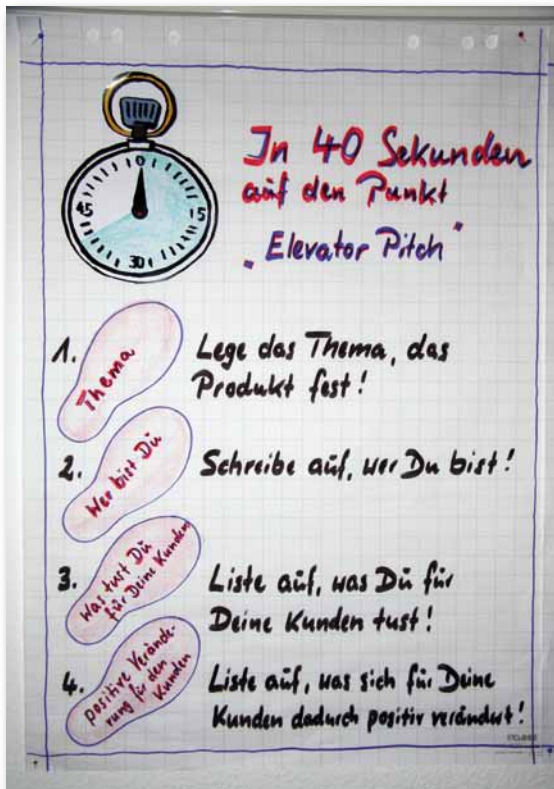 0
45
15
30
In 40 Sekunden
auf den Punkt
„Elevator Pitch"
1.
Thema
Lege das Thema, das
Produkt fest!
2.
Wer bist Du
Schreibe auf, wer Du bist!
3.
Was tust Du
für Deine Kunden
Liste auf, was Du für
Deine Kunden tust!
4.
positive Verände-
rung für den
Kunden
Liste auf, was sich für Deine
Kunden dadurch positiv verändert!